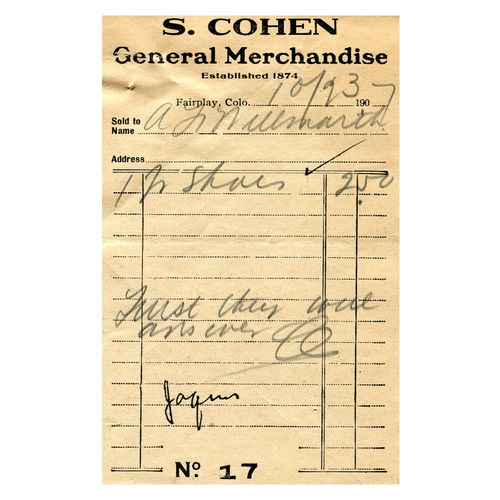 S. COHEN
General Merchandise
Established 1874
Fairplay, Colo. 10/23 1907
Sold to
Name A
Address
1 pr Shoes 2.50
Trust they will
answer
Jaques
No. 17